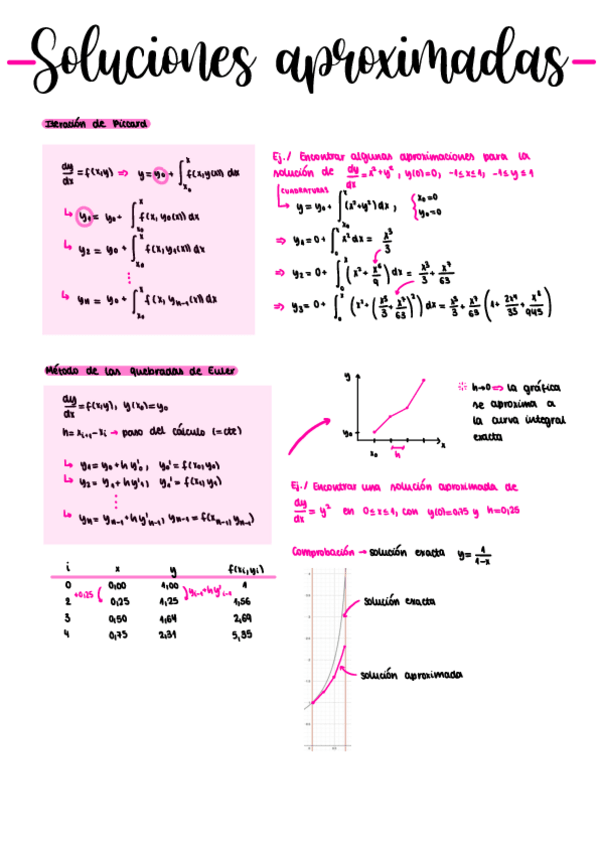 Soluciones aproximadas
Iteración de Piccard
dy/dx = f(x,y) ⇒ y = y₀ + ∫_{x₀}^{x} f(x,y(x)) dx
↳ y₁ = y₀ + ∫_{x₀}^{x} f(x, y₀(x)) dx
↳ y₂ = y₀ + ∫_{x₀}^{x} f(x, y₁(x)) dx
⋮
↳ yₙ = y₀ + ∫_{x₀}^{x} f(x, yₙ₋₁(x)) dx
Ej./ Encontrar algunas aproximaciones para la
solución de dy/dx = x²+y², y(0)=0, -1≤x≤1, -1≤y≤1
CUADRATURAS
↳ y = y₀ + ∫_{x₀}^{x} (x²+y²) dx, { x₀=0 y₀=0
⇒ y₁ = 0 + ∫_{0}^{x} x² dx = x³/3
⇒ y₂ = 0 + ∫_{0}^{x} (x² + x⁶/9) dx = x³/3 + x⁷/63
⇒ y₃ = 0 + ∫_{0}^{x} (x² + (x³/3 + x⁷/63)²) dx = x³/3 + x⁷/63 (1 + 2x⁴/33 + x⁸/945)
Método de las quebradas de Euler
dy/dx = f(x,y), y(x₀)=y₀
h = xᵢ₊₁ - xᵢ → paso del cálculo (=cte)
↳ y₁ = y₀ + h y'₀, y₀' = f(x₀,y₀)
↳ y₂ = y₁ + h y'₁, y₁' = f(x₁,y₁)
⋮
↳ yₙ = yₙ₋₁ + h y'ₙ₋₁, yₙ₋₁ = f(xₙ₋₁, yₙ₋₁)
y
y₀
x₀
h
x
h→0 ⇒ la gráfica
se aproxima a
la curva integral
exacta
Ej./ Encontrar una solución aproximada de
dy/dx = y² en 0≤x≤1, con y(0)=0,75 y h=0,25
Comprobación → solución exacta y = 1/(1-x)
i x y f(xᵢ,yᵢ)
0 0,00 1,00 1
+0,25
yᵢ₋₁+hy'ᵢ₋₁
2 0,25 1,25 1,56
3 0,50 1,64 2,69
4 0,75 2,31 5,35
solución exacta
solución aproximada